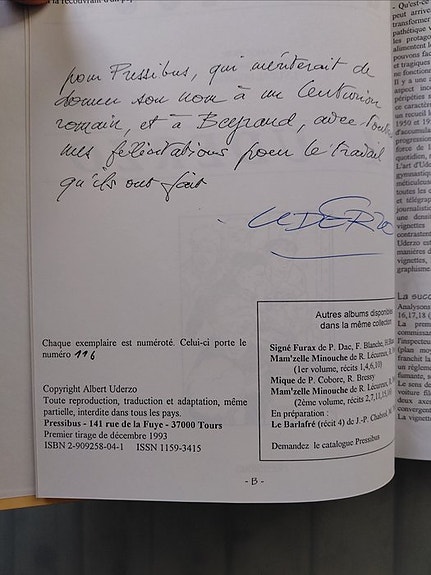 la recouvrant d'un pap
pour Pressibus, qui mériterait de
donner son nom à un Centurion
romain, et à Beyrand, avec toutes
mes félicitations pour le travail
qu'ils ont fait
UDERZO
Chaque exemplaire est numéroté. Celui-ci porte le
numéro 116
Copyright Albert Uderzo
Toute reproduction, traduction et adaptation, même
partielle, interdite dans tous les pays.
Pressibus - 141 rue de la Fuye - 37000 Tours
Premier tirage de décembre 1993
ISBN 2-909258-04-1 ISSN 1159-3415
Autres albums disponible
dans la même collection
Signé Furax de P. Dac, F. Blanche, H.
Mam'zelle Minouche de R. Lécureux, R.
(1er volume, récits 1,4,6,10)
Mique de P. Cobore, R. Bressy
Mam'zelle Minouche de R. Lécureux, R.
(2ème volume, récits 2,7,11,15,
En préparation :
Le Barlafré (récit 4) de J.-P. Chabrol,
Demandez le catalogue Pressibus
- B -
- Qu'est-ce
peut arrive
transformer
pathétique
les protago
alimentent l
pouvons fac
et tragiques
ne fonction
Il y a une i
aspect inco
péripéties
ce caractère
un recueil l
1950 et 19
d'accumula
progression
force de
quotidien,
L'art d'Uder
gymnastique
méticuleuse
toutes les
et télégrap
journalistic
une densité
vignettes
contrastent
Uderzo est
vignettes,
graphisme
La succ
Analysons
16,17,18 (
La premi
commissa
l'inspecteu
(plan moy
franchit la
un régleme
fumante, s
Le sens de
voiture fila
deux axes
convergent
La vignett